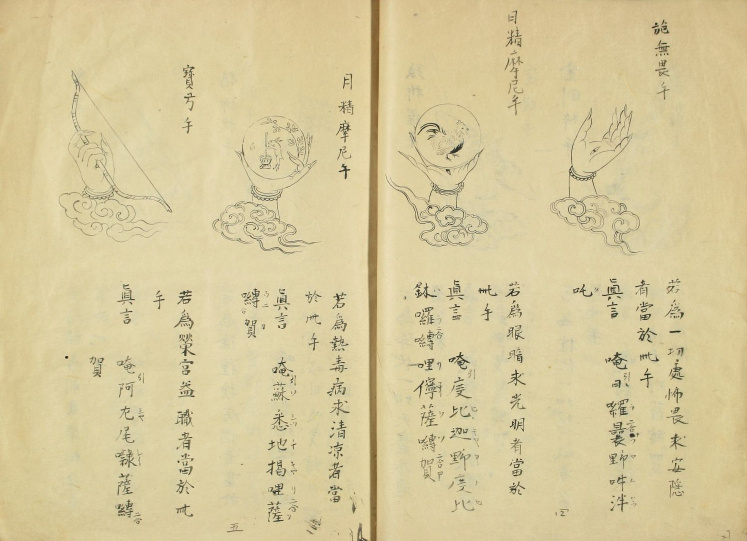 施無畏手
若為一切處怖畏求安隱
者當於此手
真言 唵 日羅曩野吽泮
吒
日精摩尼手
若為眼暗求光明者當於
此手
真言 唵度比迦野度比
鉢囉嚩哩儜薩嚩賀
月精摩尼手
若為熱毒病求清凉者當
於此手
真言 唵蘇悉地揭哩薩
嚩賀
寶弓手
若為榮官益職者當於此
手
真言 唵阿左尾㘑薩嚩
賀
四
五